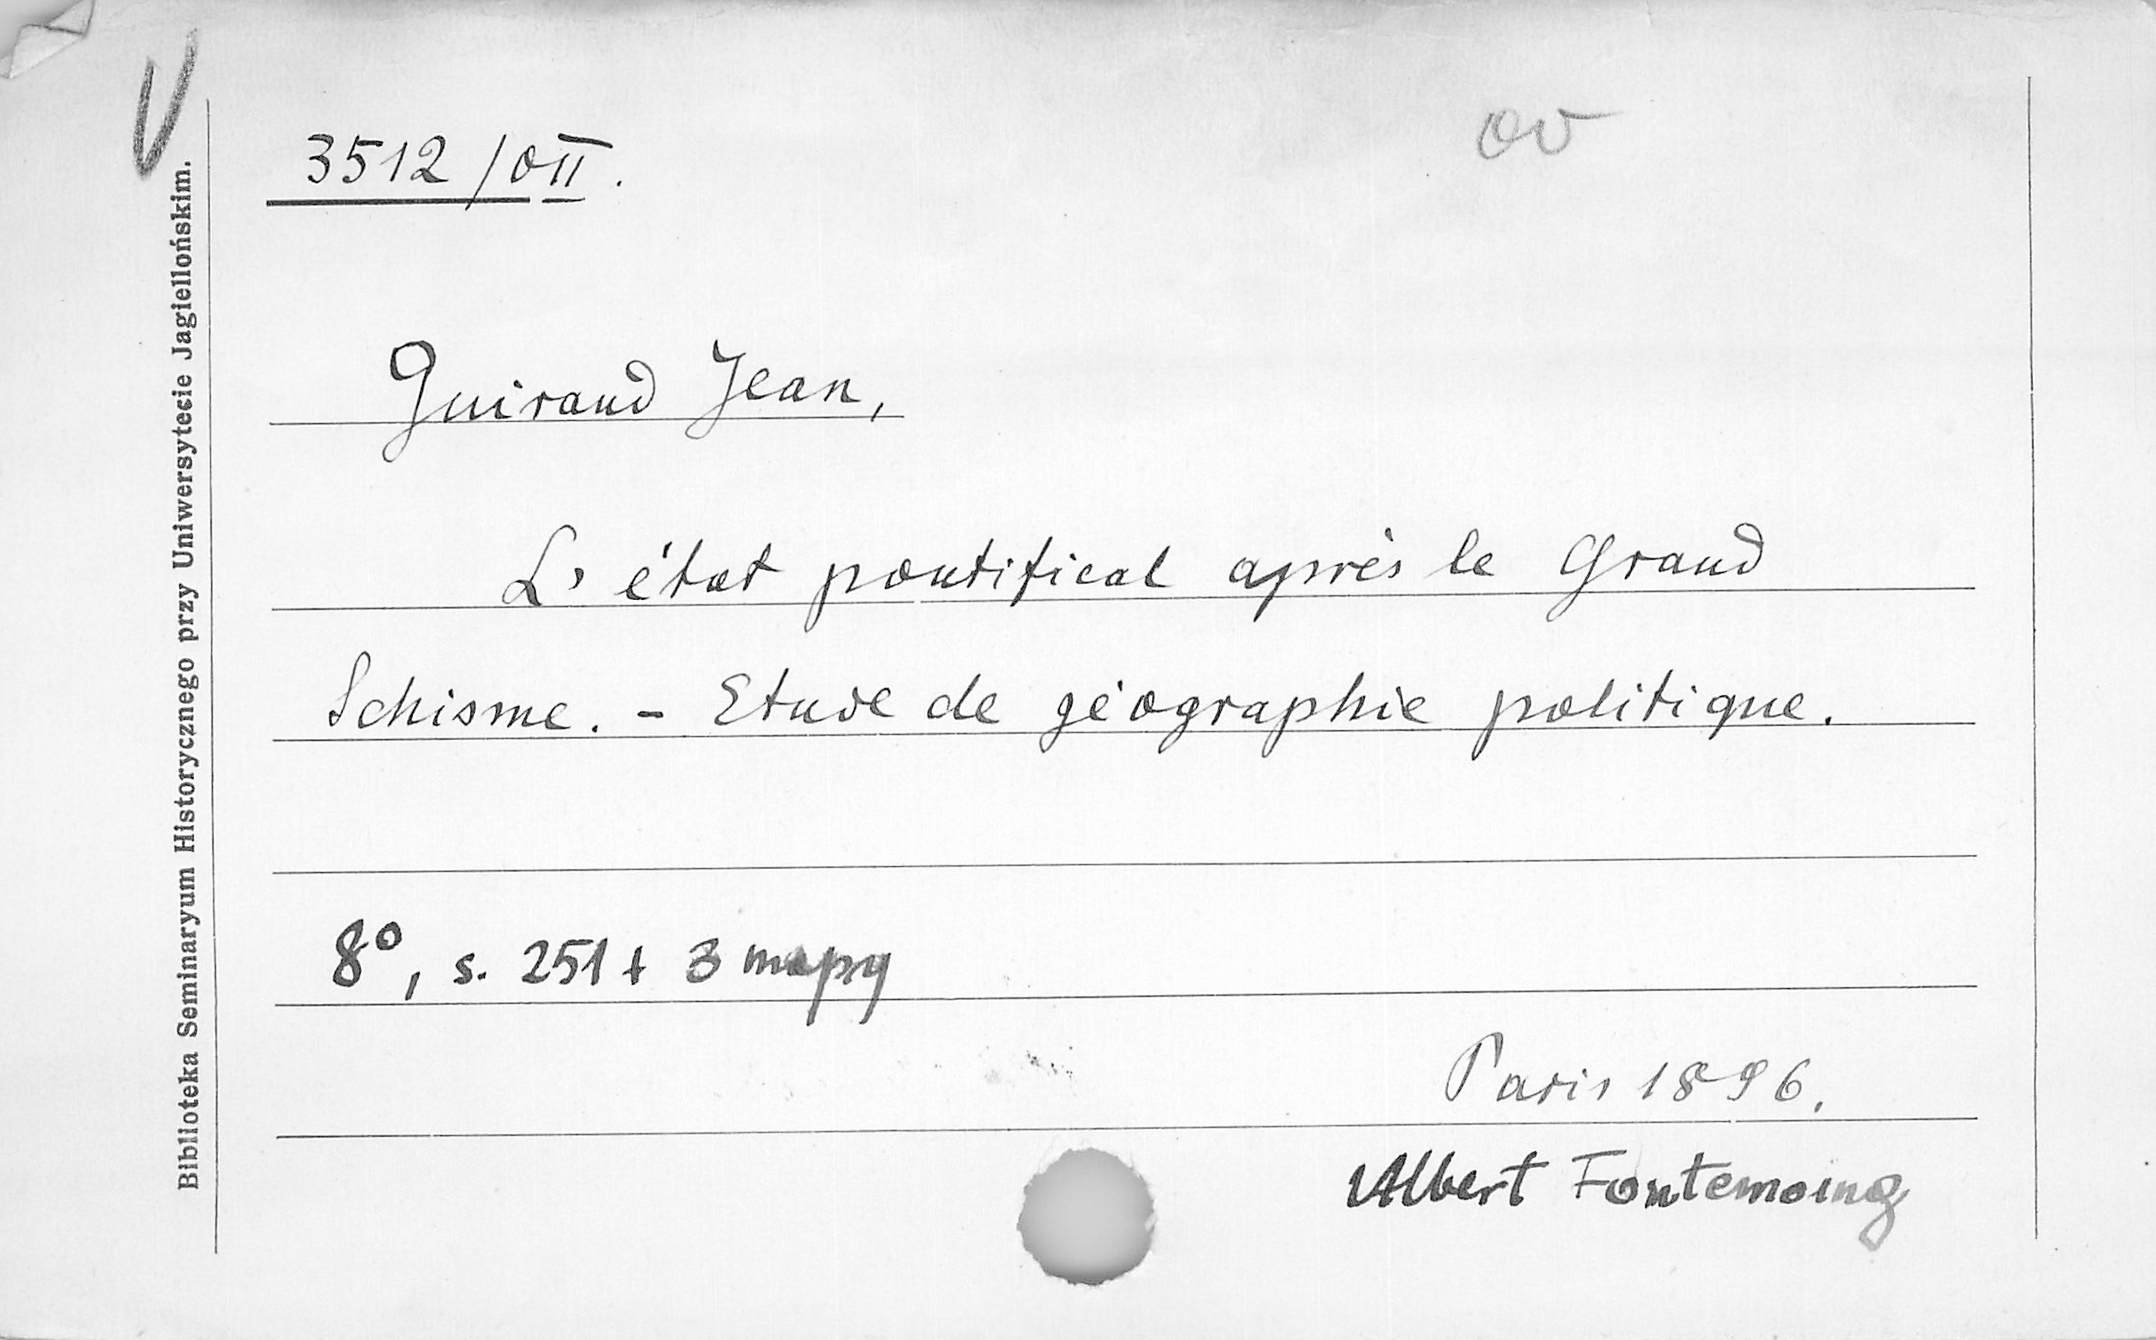 V
3512/OII.
ov
Guiraud Jean,
L'état pontifical après le Grand
Schisme. - Etude de géographie politique.
8°, s. 251 + 3 mapy
Paris 1896.
Albert Fontemoing
Biblioteka Seminaryum Historycznego przy Uniwersytecie Jagiellońskim.